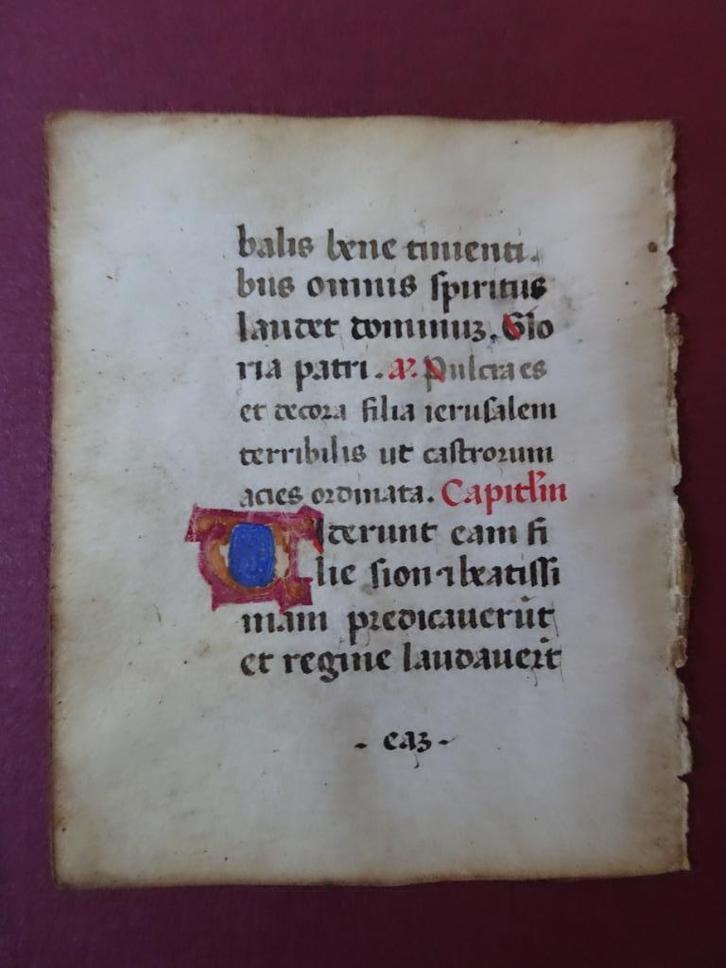 balis bene timenti
bus omnis spiritus
laudet dominuꝫ. Glo
ria patri. a͞. Pulcra es
et decora filia ierusalem
terribilis ut castrorum
acies ordinata. Capitl̄m
Uiderunt eam fi
lie sion ⁊ beatissi
mam predicauerūt
et regine laudauer̄t
- eaꝫ -